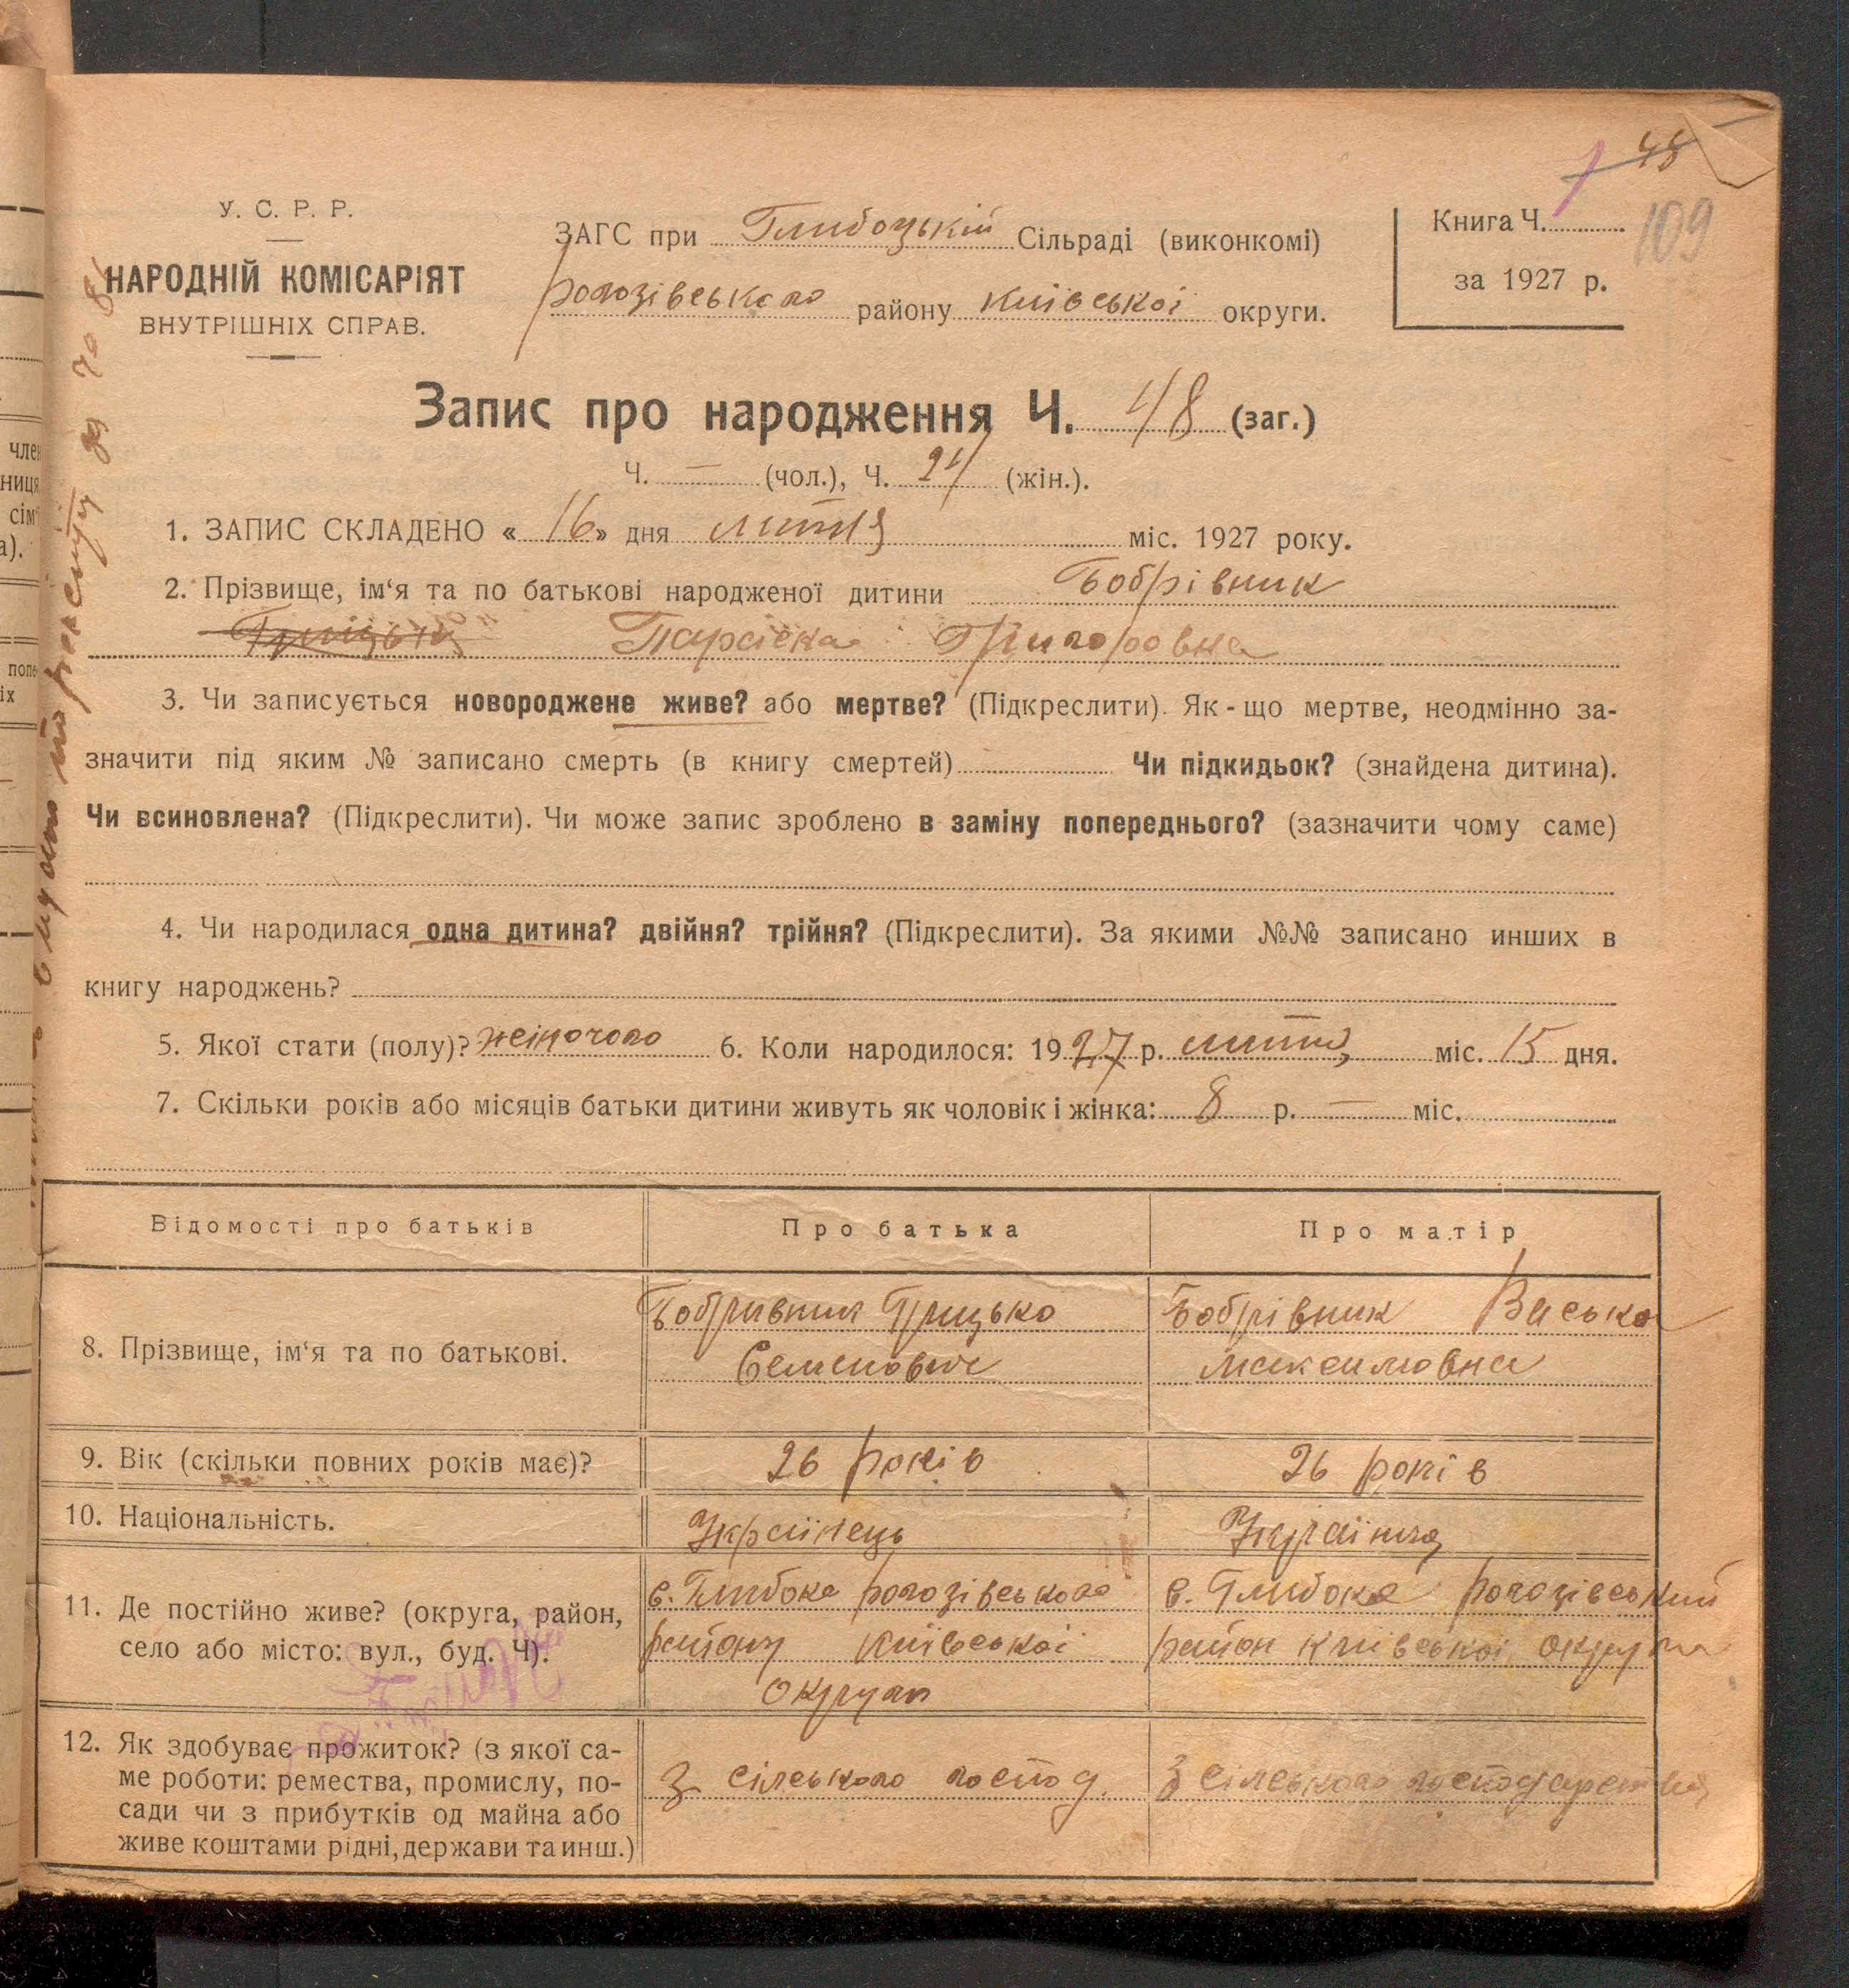 48
109
У. С. Р. Р.
НАРОДНІЙ КОМІСАРІЯТ
ВНУТРІШНІХ СПРАВ.
ЗАГС при Глибоцькій Сільраді (виконкомі)
рогозівського району київської округи.
Книга Ч.
за 1927 р.
Запис про народження Ч. 48 (заг.)
Ч. — (чол.), Ч. 24 (жін.).
1. ЗАПИС СКЛАДЕНО « 16 » дня міс. 1927 року.
2. Прізвище, ім‘я та по батькові народженої дитини Бобрівник
Парасска Григоровна
3. Чи записується новороджене живе? або мертве? (Підкреслити). Як-що мертве, неодмінно за-
значити під яким № записано смерть (в книгу смертей) Чи підкидьок? (знайдена дитина).
Чи всиновлена? (Підкреслити). Чи може запис зроблено в заміну попереднього? (зазначити чому саме)
4. Чи народилася одна дитина? двійня? трійня? (Підкреслити). За якими №№ записано инших в
книгу народжень?
5. Якої стати (полу)? жіночого 6. Коли народилося: 1927 р. міс. 15 дня.
7. Скільки років або місяців батьки дитини живуть як чоловік і жінка: 8 р. — міс.
Відомості про батьків Про батька Про матір
8. Прізвище, ім‘я та по батькові.
Бобривник Грицько
Семенович
Бобрівник Васька
максимовна
9. Вік (скільки повних років має)? 26 років 26 років
10. Національність. Українець Українка
11. Де постійно живе? (округа, район,
село або місто: вул., буд. Ч).
с. Глибоке рогозівського
району київської
округи
с. Глибоке рогозівський
район київської округи
12. Як здобуває прожиток? (з якої са-
ме роботи: ремества, промислу, по-
сади чи з прибутків од майна або
живе коштами рідні, держави та инш.)
з сілського господ.
з сілського господарства